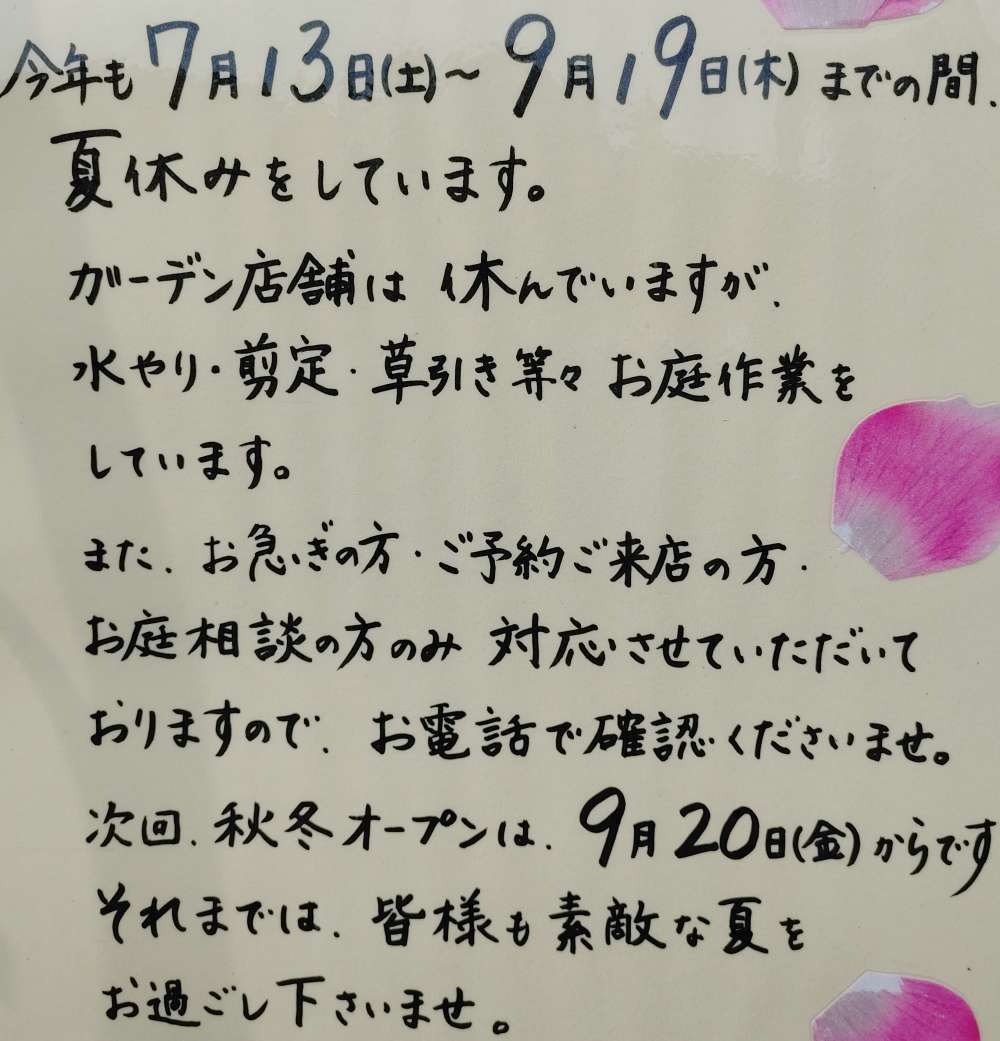 今年も7月13日(土)～9月19日(木)までの間、
夏休みをしています。
ガーデン店舗は休んでいますが、
水やり・剪定・草引き等々お庭作業を
しています。
また、お急ぎの方・ご予約ご来店の方・
お庭相談の方のみ対応させていただいて
おりますので、お電話で確認くださいませ。
次回、秋冬オープンは、9月20日(金)からです
それまでは、皆様も素敵な夏を
お過ごし下さいませ。